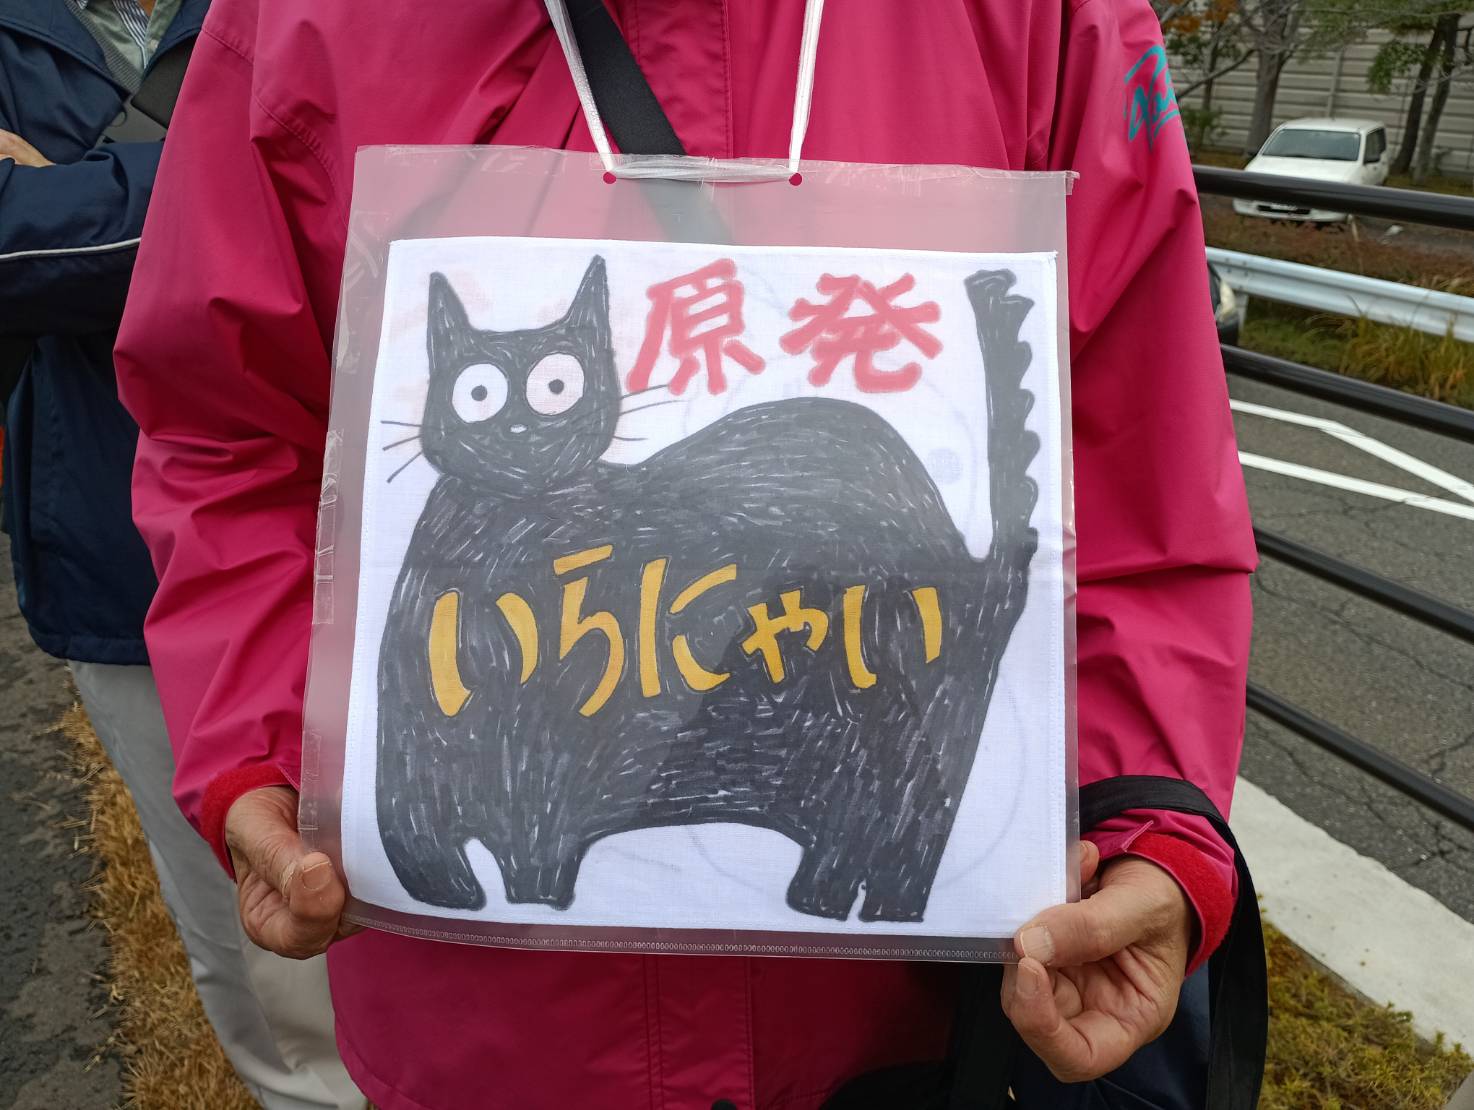 原発
いらにゃい